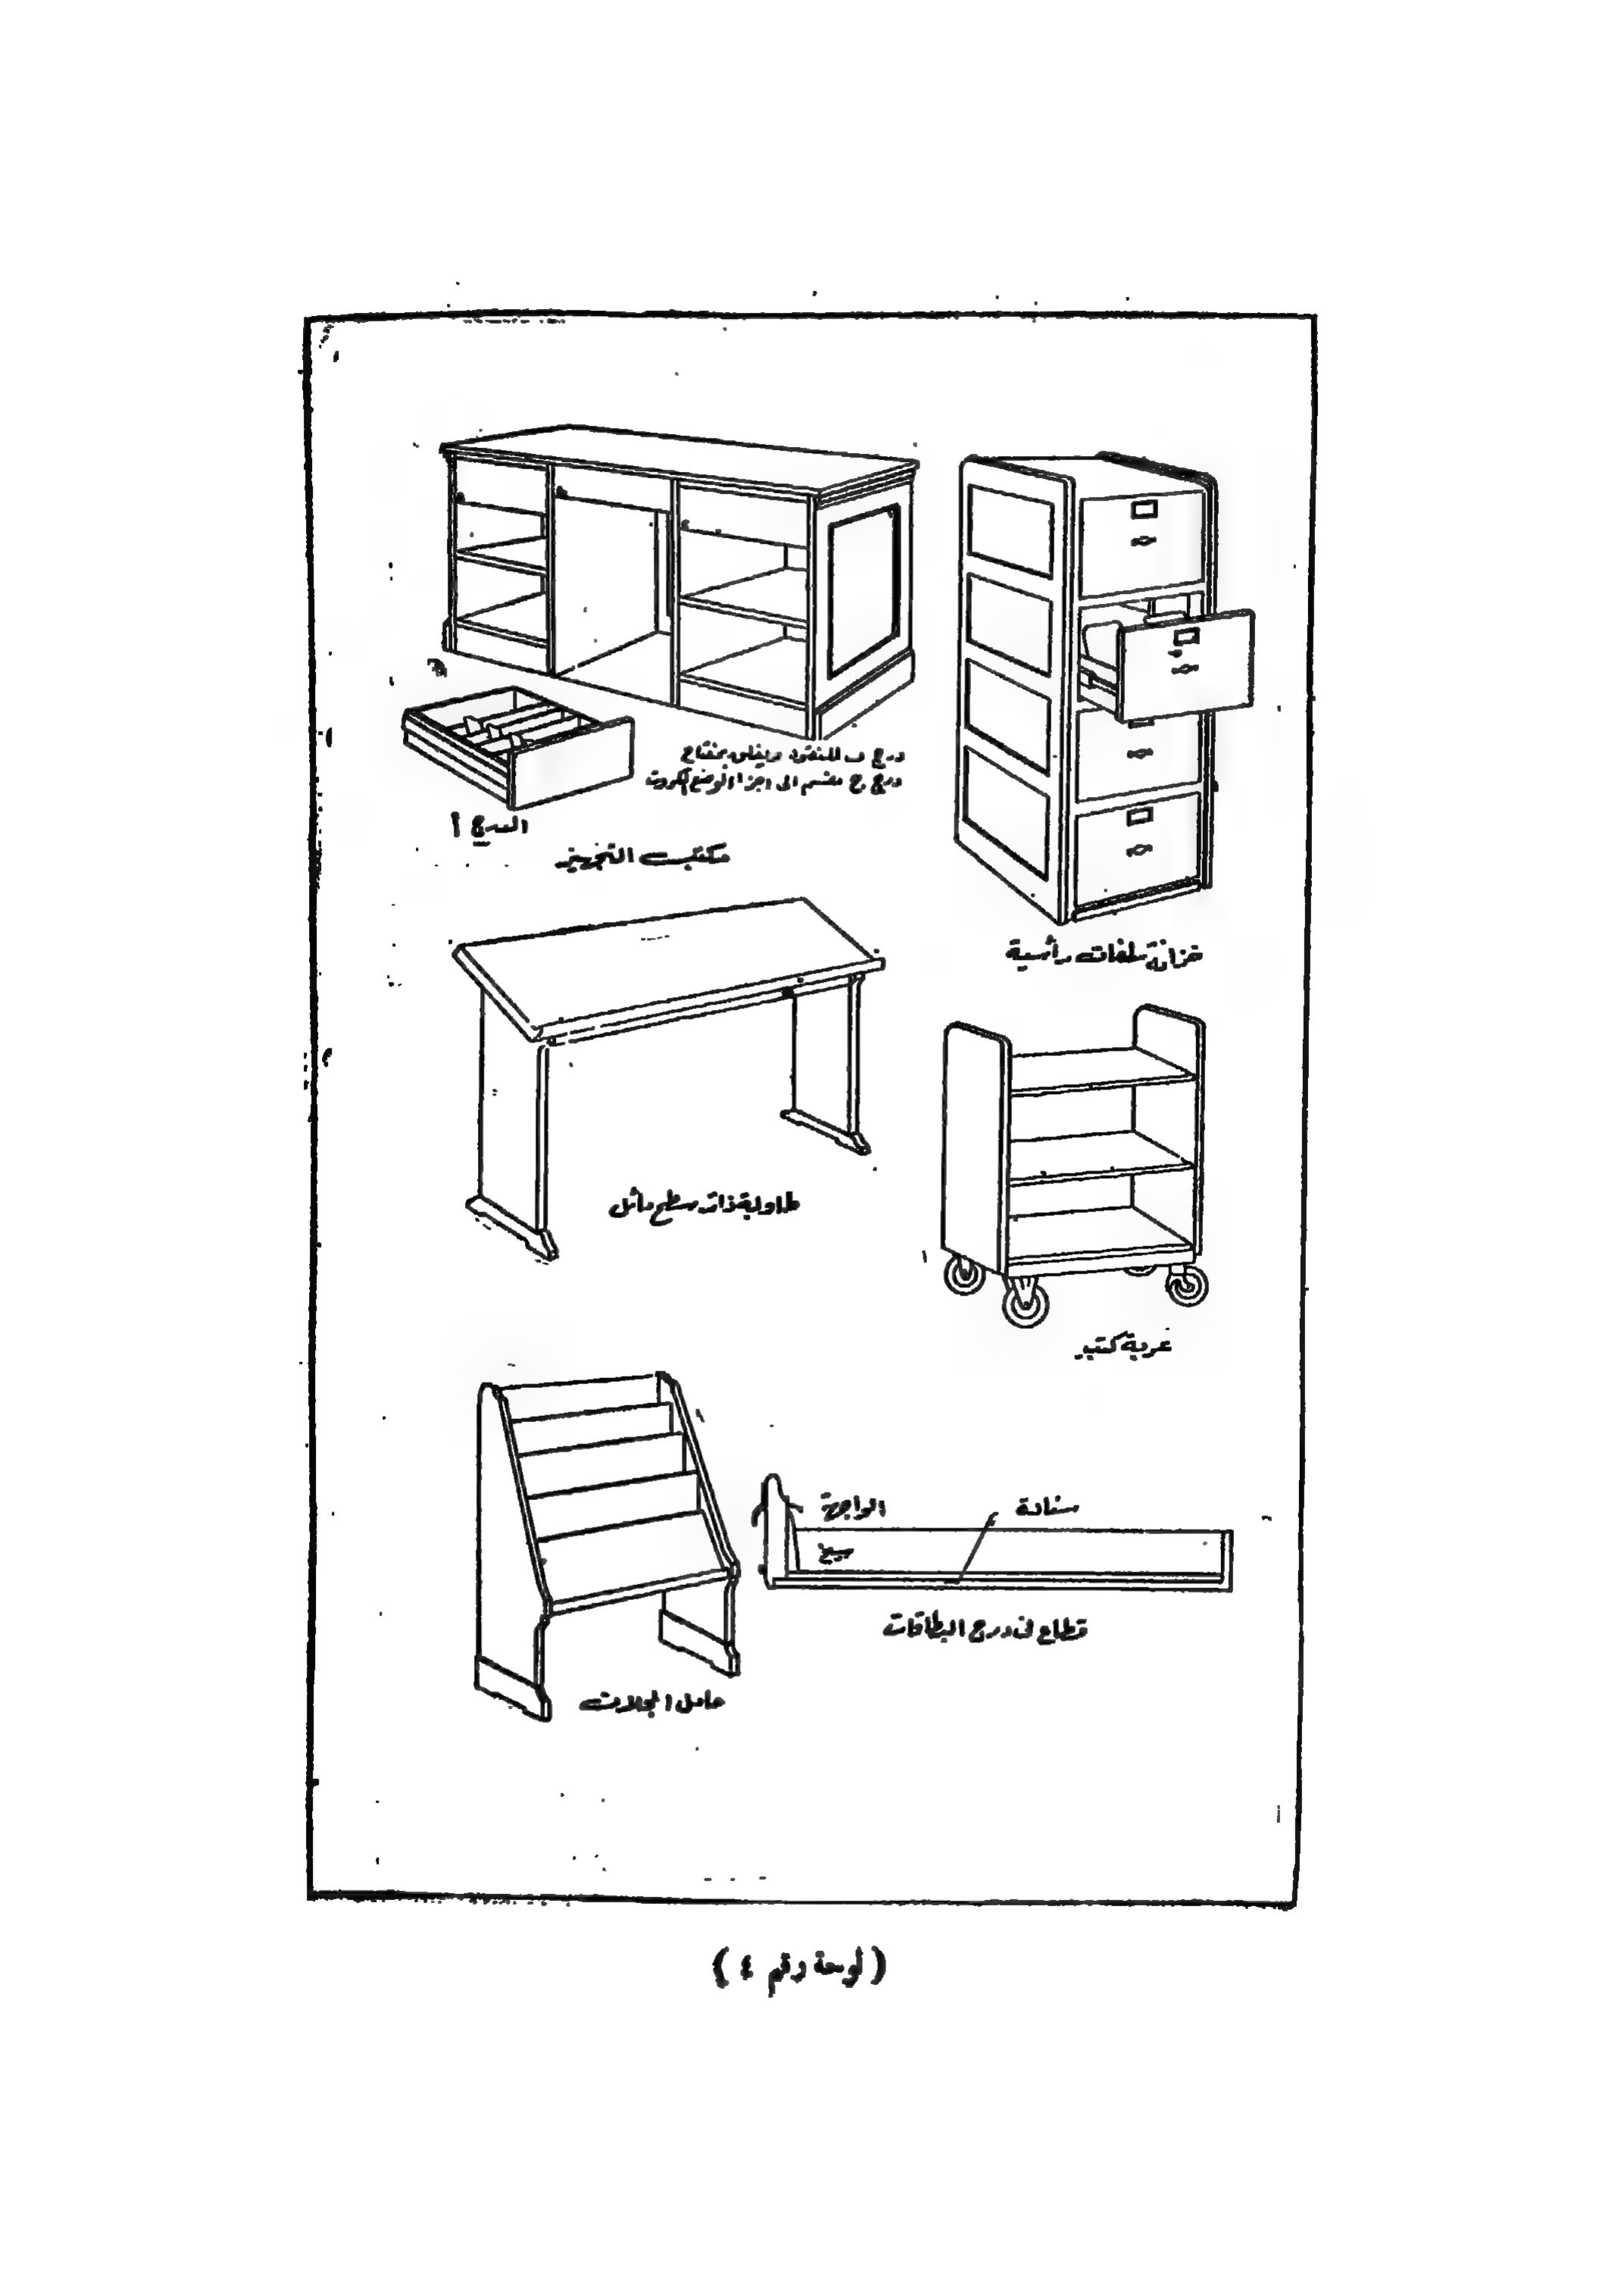 درج ب للنقود ويغلق بمفتاح
درج ج مقسم الى اجزاء لوضع الكروت
الدرج أ
مكتب التجهيز
خزانة ملفات رأسية
طاولة ذات سطح مائل
عربة كتب
الواجهة
سنادة
سيخ
قطاع فى درج البطاقات
حامل المجلات
(لوحة رقم ٤)